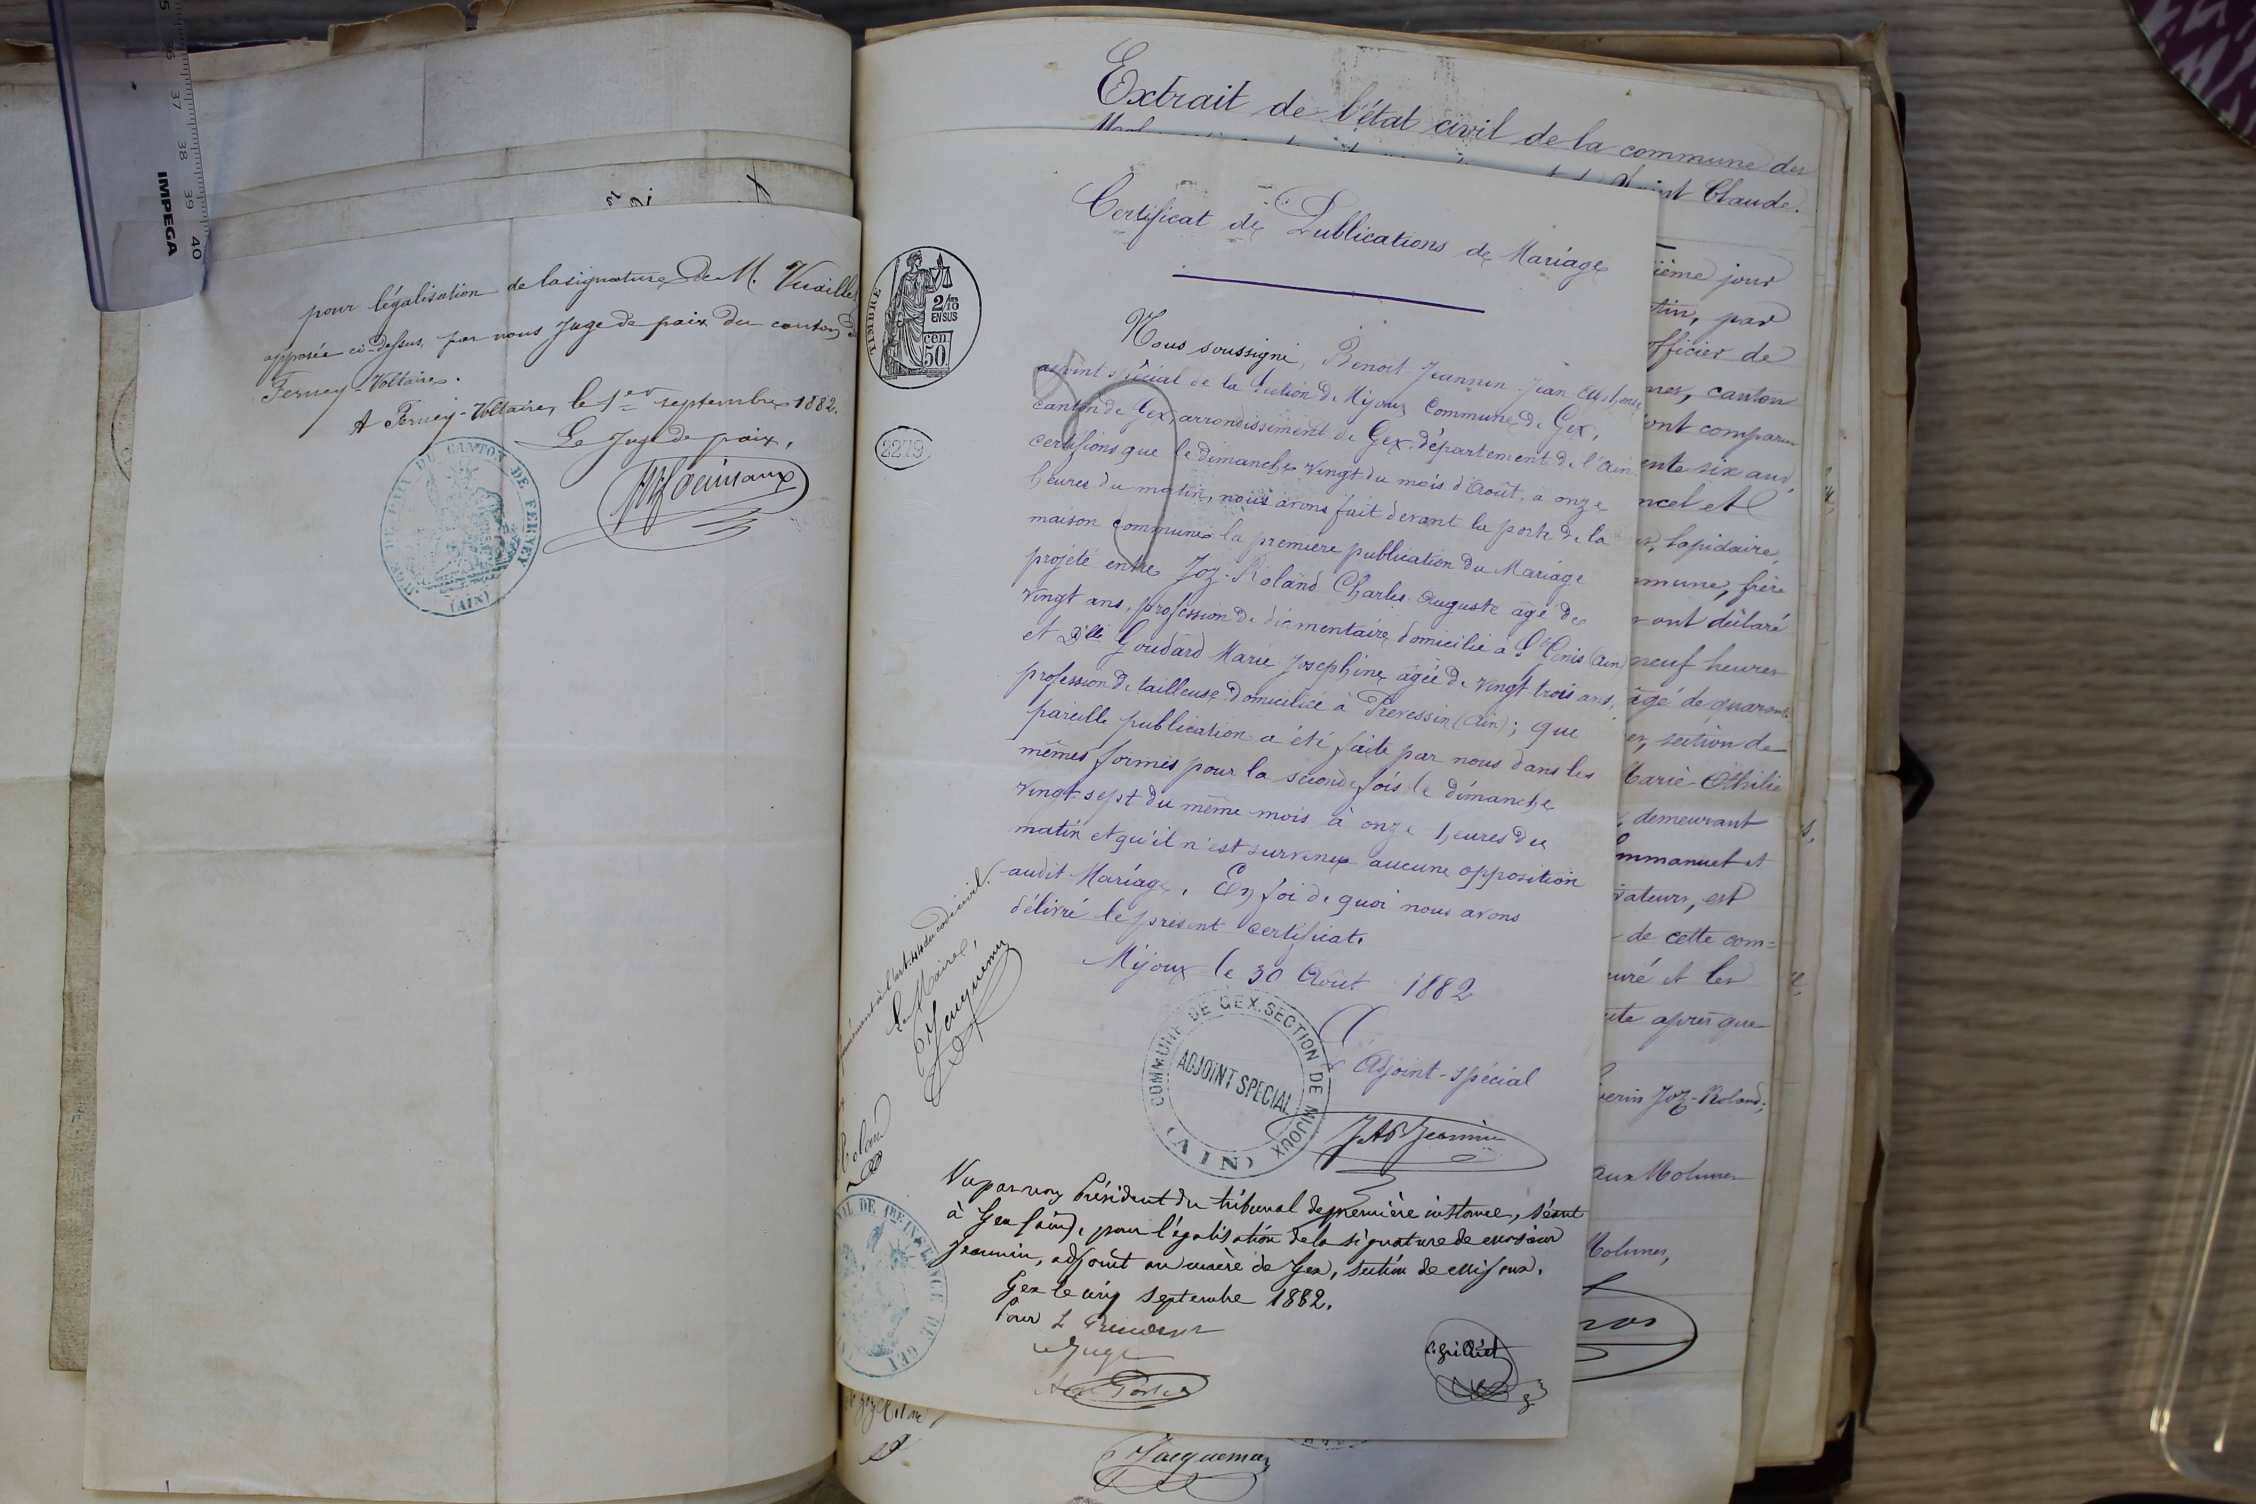 pour légalisation de la signature de M. Vuaillet
apposée ci-dessus, par nous Juge de paix du canton de
Ferney-Voltaire.
A Ferney-Voltaire, le 1er septembre 1882.
Le Juge de paix,
JUGE DE PAIX DU CANTON DE FERNEY
(AIN)
36
37
38
39
40
IMPEGA
Extrait de l'état civil de la commune des
Saint Claude.
Certificat de Publications de Mariage
TIMBRE
2/10
EN SUS
50 cen
2279
Nous soussigné, Benoit-Jeannin Jean Alphonse
adjoint spécial de la section de Mijoux Commune de Gex,
canton de Gex, arrondissement de Gex, département de l'Ain
certifions que le dimanche vingt du mois d'Août, à onze
heures du matin, nous avons fait devant la porte de la
maison commune la première publication du Mariage
projeté entre Joz-Roland Charles Auguste âgé de
vingt ans, profession de diamentaire domicilié à St Genis (Ain)
et Dlle Goudard Marie Josephine âgée de vingt trois ans,
profession de tailleuse domiciliée à Prevessin (Ain); que
pareille publication a été faite par nous dans les
mêmes formes pour la seconde fois le dimanche
vingt-sept du même mois à onze heures du
matin et qu'il n'est survenu aucune opposition
audit Mariage. En foi de quoi nous avons
délivré le présent certificat.
Mijoux le 30 Août 1882
L'Adjoint-spécial
COMMUNE DE GEX. SECTION DE MIJOUX
ADJOINT SPECIAL
(AIN)
JAB Jeannin
Vu par nous Président du tribunal de première instance, séant
à Gex (ain), pour légalisation de la signature de monsieur
Jeannin, adjoint au maire de Gex, section de Mijoux.
Gex le cinq septembre 1882.
Pour le Président
Juge
l'art. 44 du code civil.
Le Maire,
Jacquemier
Roland
DE 1RE INSTANCE DE GEX
ième jour
tin, par
officier de
canton
ont comparu
ente six ans,
ncel et
lapidaire
mmune, frère
ont déclaré
neuf heures
âgé de quarante
section de
Marie-Othilie
demeurant
mmanuel et
vateurs, est
de cette com=
uré et les
ite après que
verin Joz-Roland;
aux Molunes
Molunes,
Jacquemier